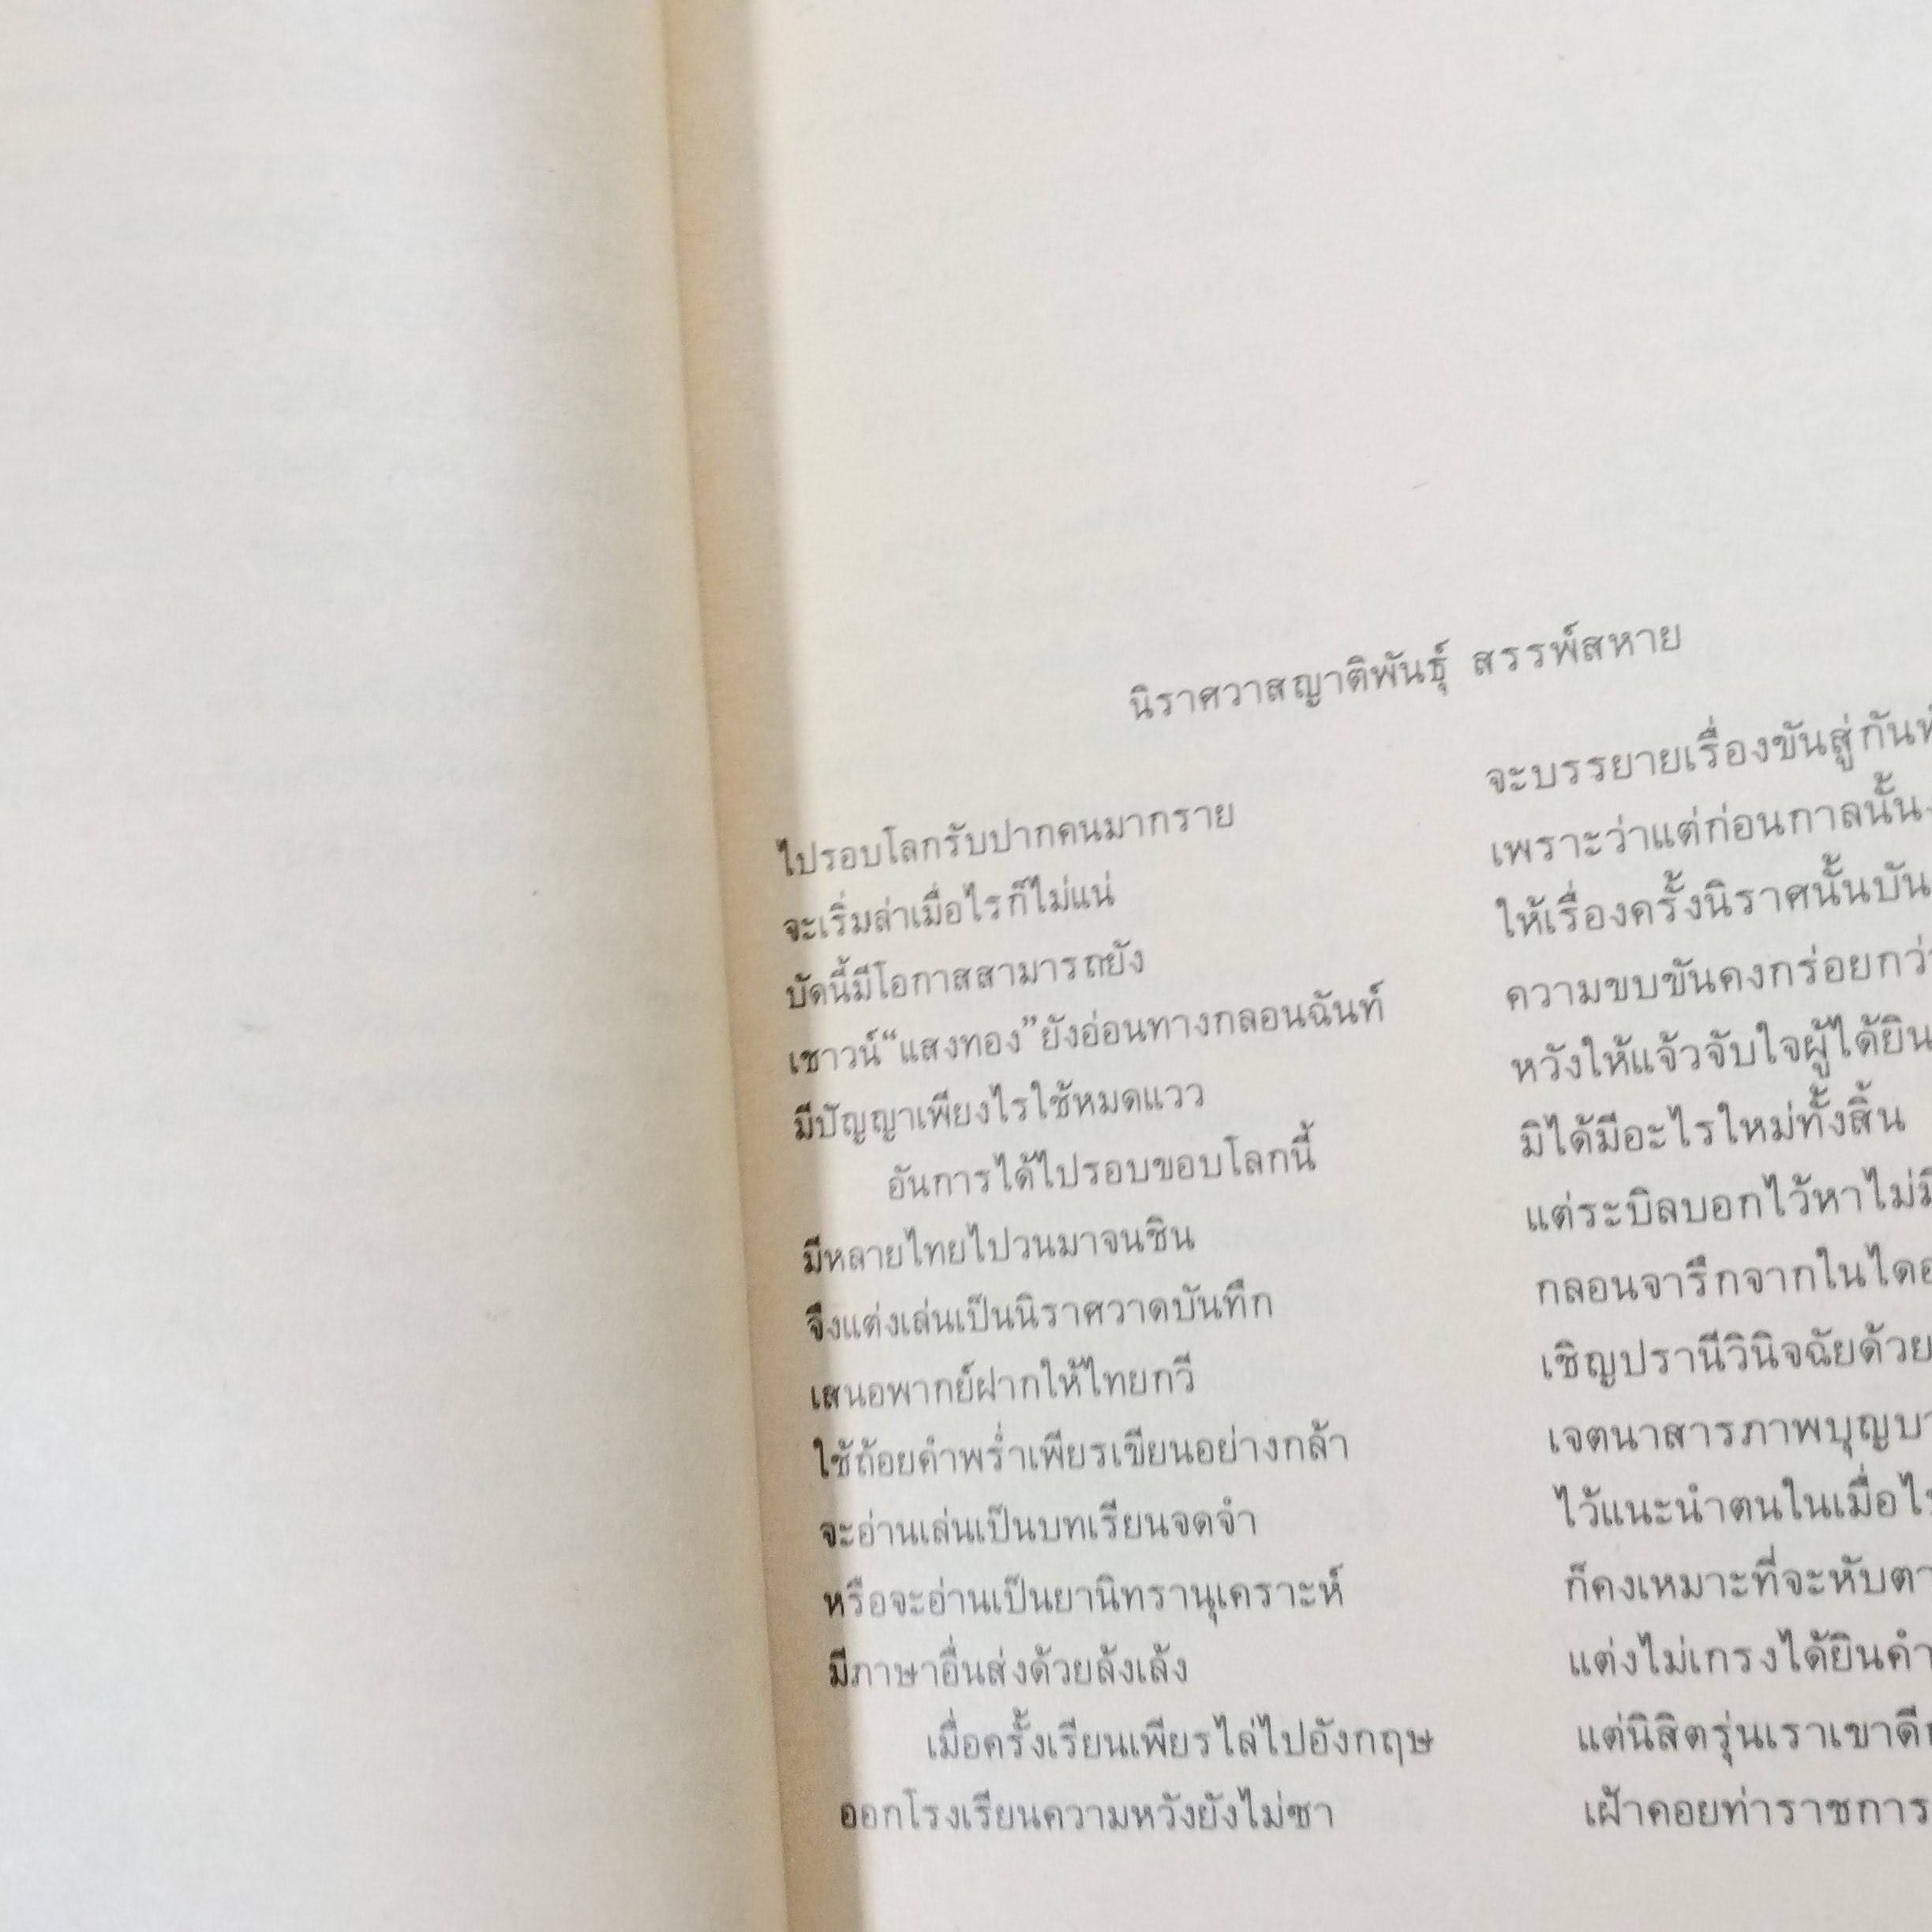 นิราศวาสญาติพันธุ์ สรรพ์สหาย
ไปรอบโลกรับปากคนมากราย จะบรรยายเรื่องขันสู่กัน
จะเริ่มล่าเมื่อไรก็ไม่แน่ เพราะว่าแต่ก่อนกาลนั้น
บัดนี้มีโอกาสสามารถยัง ให้เรื่องครั้งนิราศนั้นบัน
เชาวน์“แสงทอง”ยังอ่อนทางกลอนฉันท์ ความขบขันคงกร่อยกว่
มีปัญญาเพียงไรใช้หมดแวว หวังให้แจ้วจับใจผู้ได้ยิน
อันการได้ไปรอบขอบโลกนี้ มิได้มีอะไรใหม่ทั้งสิ้น
มีหลายไทยไปวนมาจนชิน แต่ระบิลบอกไว้หาไม่มี
จึงแต่งเล่นเป็นนิราศวาดบันทึก กลอนจารึกจากในไดอ
เสนอพากย์ฝากให้ไทยกวี เชิญปรานีวินิจฉัยด้วย
ใช้ถ้อยคำพร่ำเพียรเขียนอย่างกล้า เจตนาสารภาพบุญบา
จะอ่านเล่นเป็นบทเรียนจดจำ ไว้แนะนำตนในเมื่อไ
หรือจะอ่านเป็นยานิทรานุเคราะห์ ก็คงเหมาะที่จะหับตา
มีภาษาอื่นส่งด้วยล้งเล้ง แต่งไม่เกรงได้ยินคำ
เมื่อครั้งเรียนเพียรไล่ไปอังกฤษ แต่นิสิตรุ่นเราเขาดี
ออกโรงเรียนความหวังยังไม่ซา เฝ้าคอยท่าราชการ